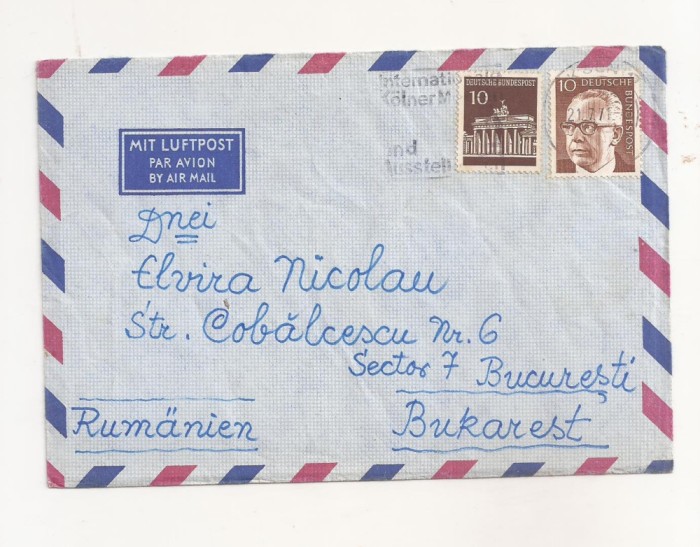 Internationale
Kölner M
und
Ausstell
DEUTSCHE BUNDESPOST
10
10 DEUTSCHE
BUNDESPOST
MIT LUFTPOST
PAR AVION
BY AIR MAIL
Dnei
Elvira Nicolau
Str. Cobălcescu Nr. 6
Sector 7 Bucureşti
Rumänien Bukarest